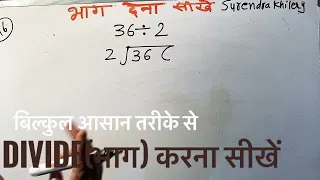 भाग देना सीखें Surendra Khilery
36÷2
2√36(
बिल्कुल आसान तरीके से
DIVIDE(भाग) करना सीखें